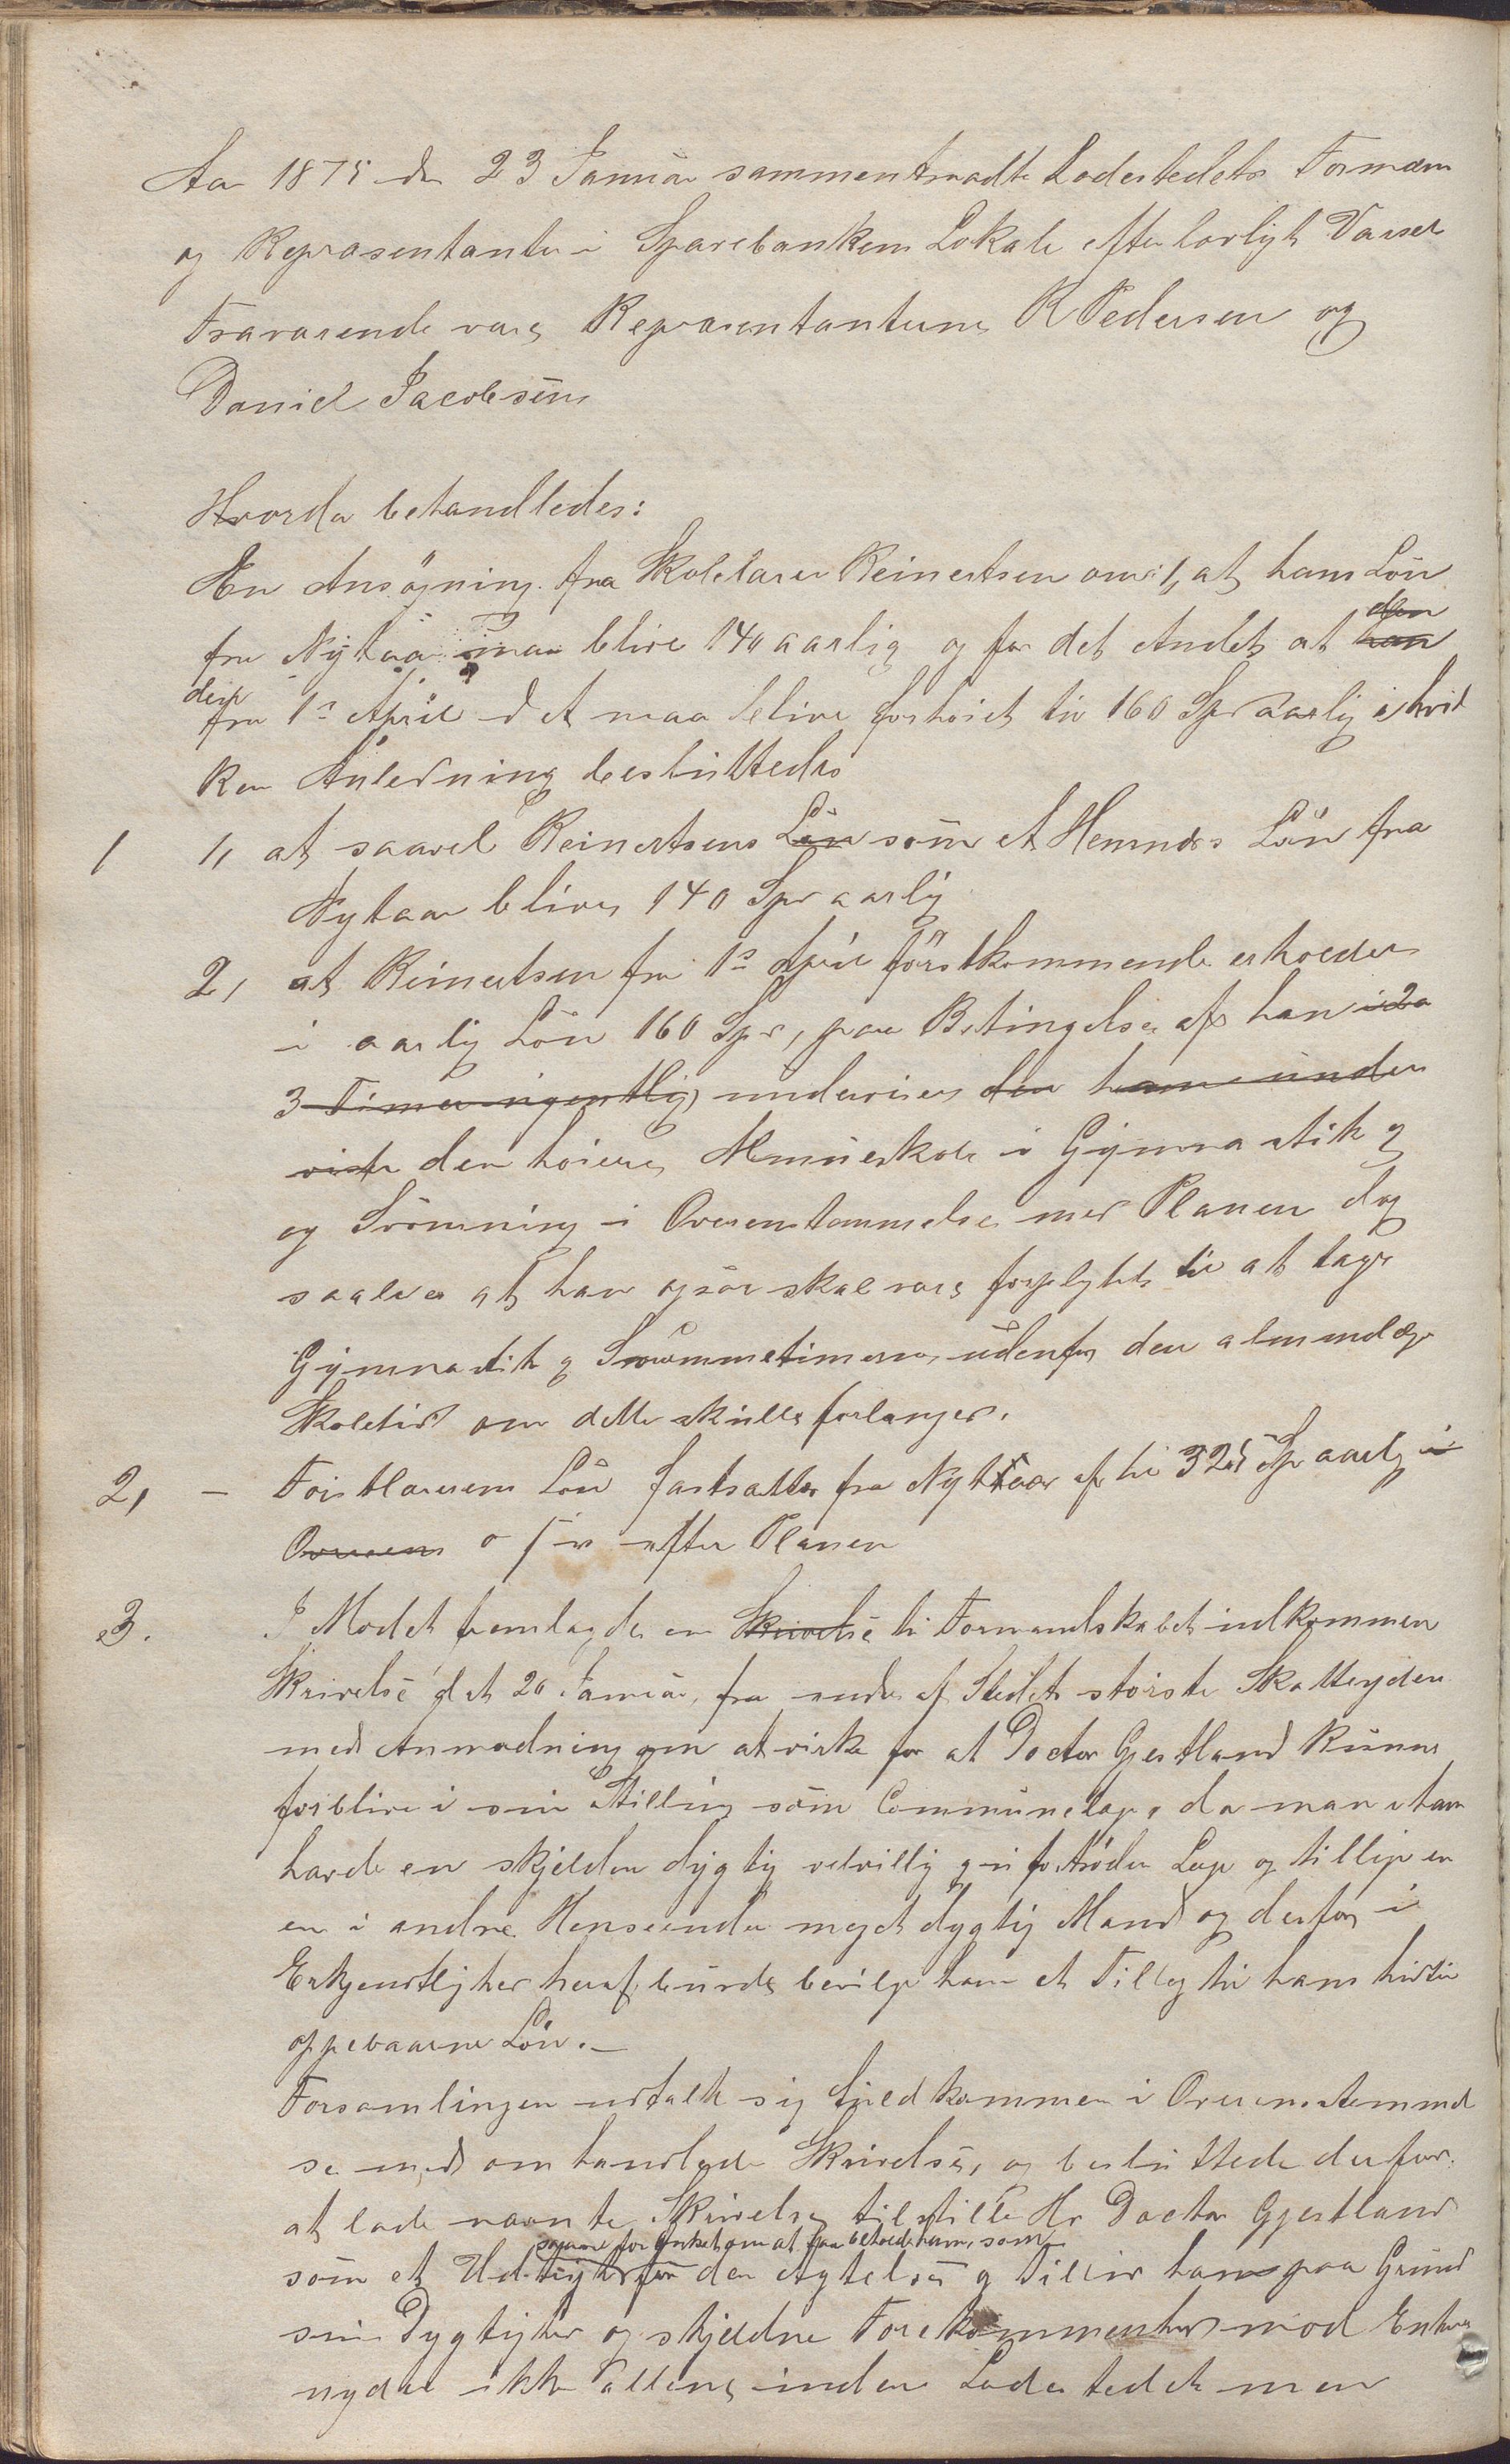 Aar 1875 den 23 Januar sammentraadte Ladestedets Formænd
og Repræsentanter i Sparebankens Lokale efter lovligt Varsel
Fraværende vare Repræsentanterne R Pedersen og
Daniel Jacobsen
Hvorda behandledes:
En Ansøgning fra Skolelærer Reinertsen om: 1, at hans Løn
fra Nytaar maa blive 140 aarlig og for det Andet at han
den
den
fra 1ste April d A maa blive forhøiet til 160 Spd aarlig i hvil
ken Anledning besluttedes
1 1, at saavel Reinertsens Løn som et Hemnæs Løn fra
Nytaar bliver 140 Spd aarlig
2, at Reinertsen fra 1ste April førstkommende erholder
i aarlig Løn 160 Spd, paa Betingelse af han
3 Timer ugentlig underviser den hanne under
viste den høiere Almueskole i Gymnastik og
og Svømning i Overenstemmelse med Planen dog
saaledes at han ogsaa skal være forpligtet til at tage
Gymnastik og Svømmetimerne udenfor den almindelige
Skoletid om dette skulle forlanges.
2, - Førstlærerens Løn fastsattes fra Nytaar af til 325 Spd aarlig i
Overens o s v efter Planen
3. I Mødet fremlagdes en Skrivelse til Formandskabet indkommen
Skrivelse dat 20 Januar, fra endel af Stedets største Skatteydere
med Anmodning om at virke for at Doctor Gjestland kunne
forblive i sin Stilling som Communelæge, da man i ham
havde en skjelden dygtig velvillig og ufortrøden Læge og tillige en
en i andre Henseender meget dygtig Mand og derfor i
Erkjendtlighed heraf burde bevilge ham et Tillæg til hans hidtil
oppebaarne Løn.-
Forsamlingen udtalte sig fuldkommen i Overensstemmel
se med omhandlede Skrivelse, og besluttede derfor
at lade nævnte Skrivelse tilstille Hr Doctor Gjestland
saavel for Ønsket om at faa beholde ham, som
som et Udtryk for den Agtelse og Tillid han paa Grund
sin Dygtighed og skjeldne Forekommenhed mod Enhver
nyder ikke allene inden Ladestedet men